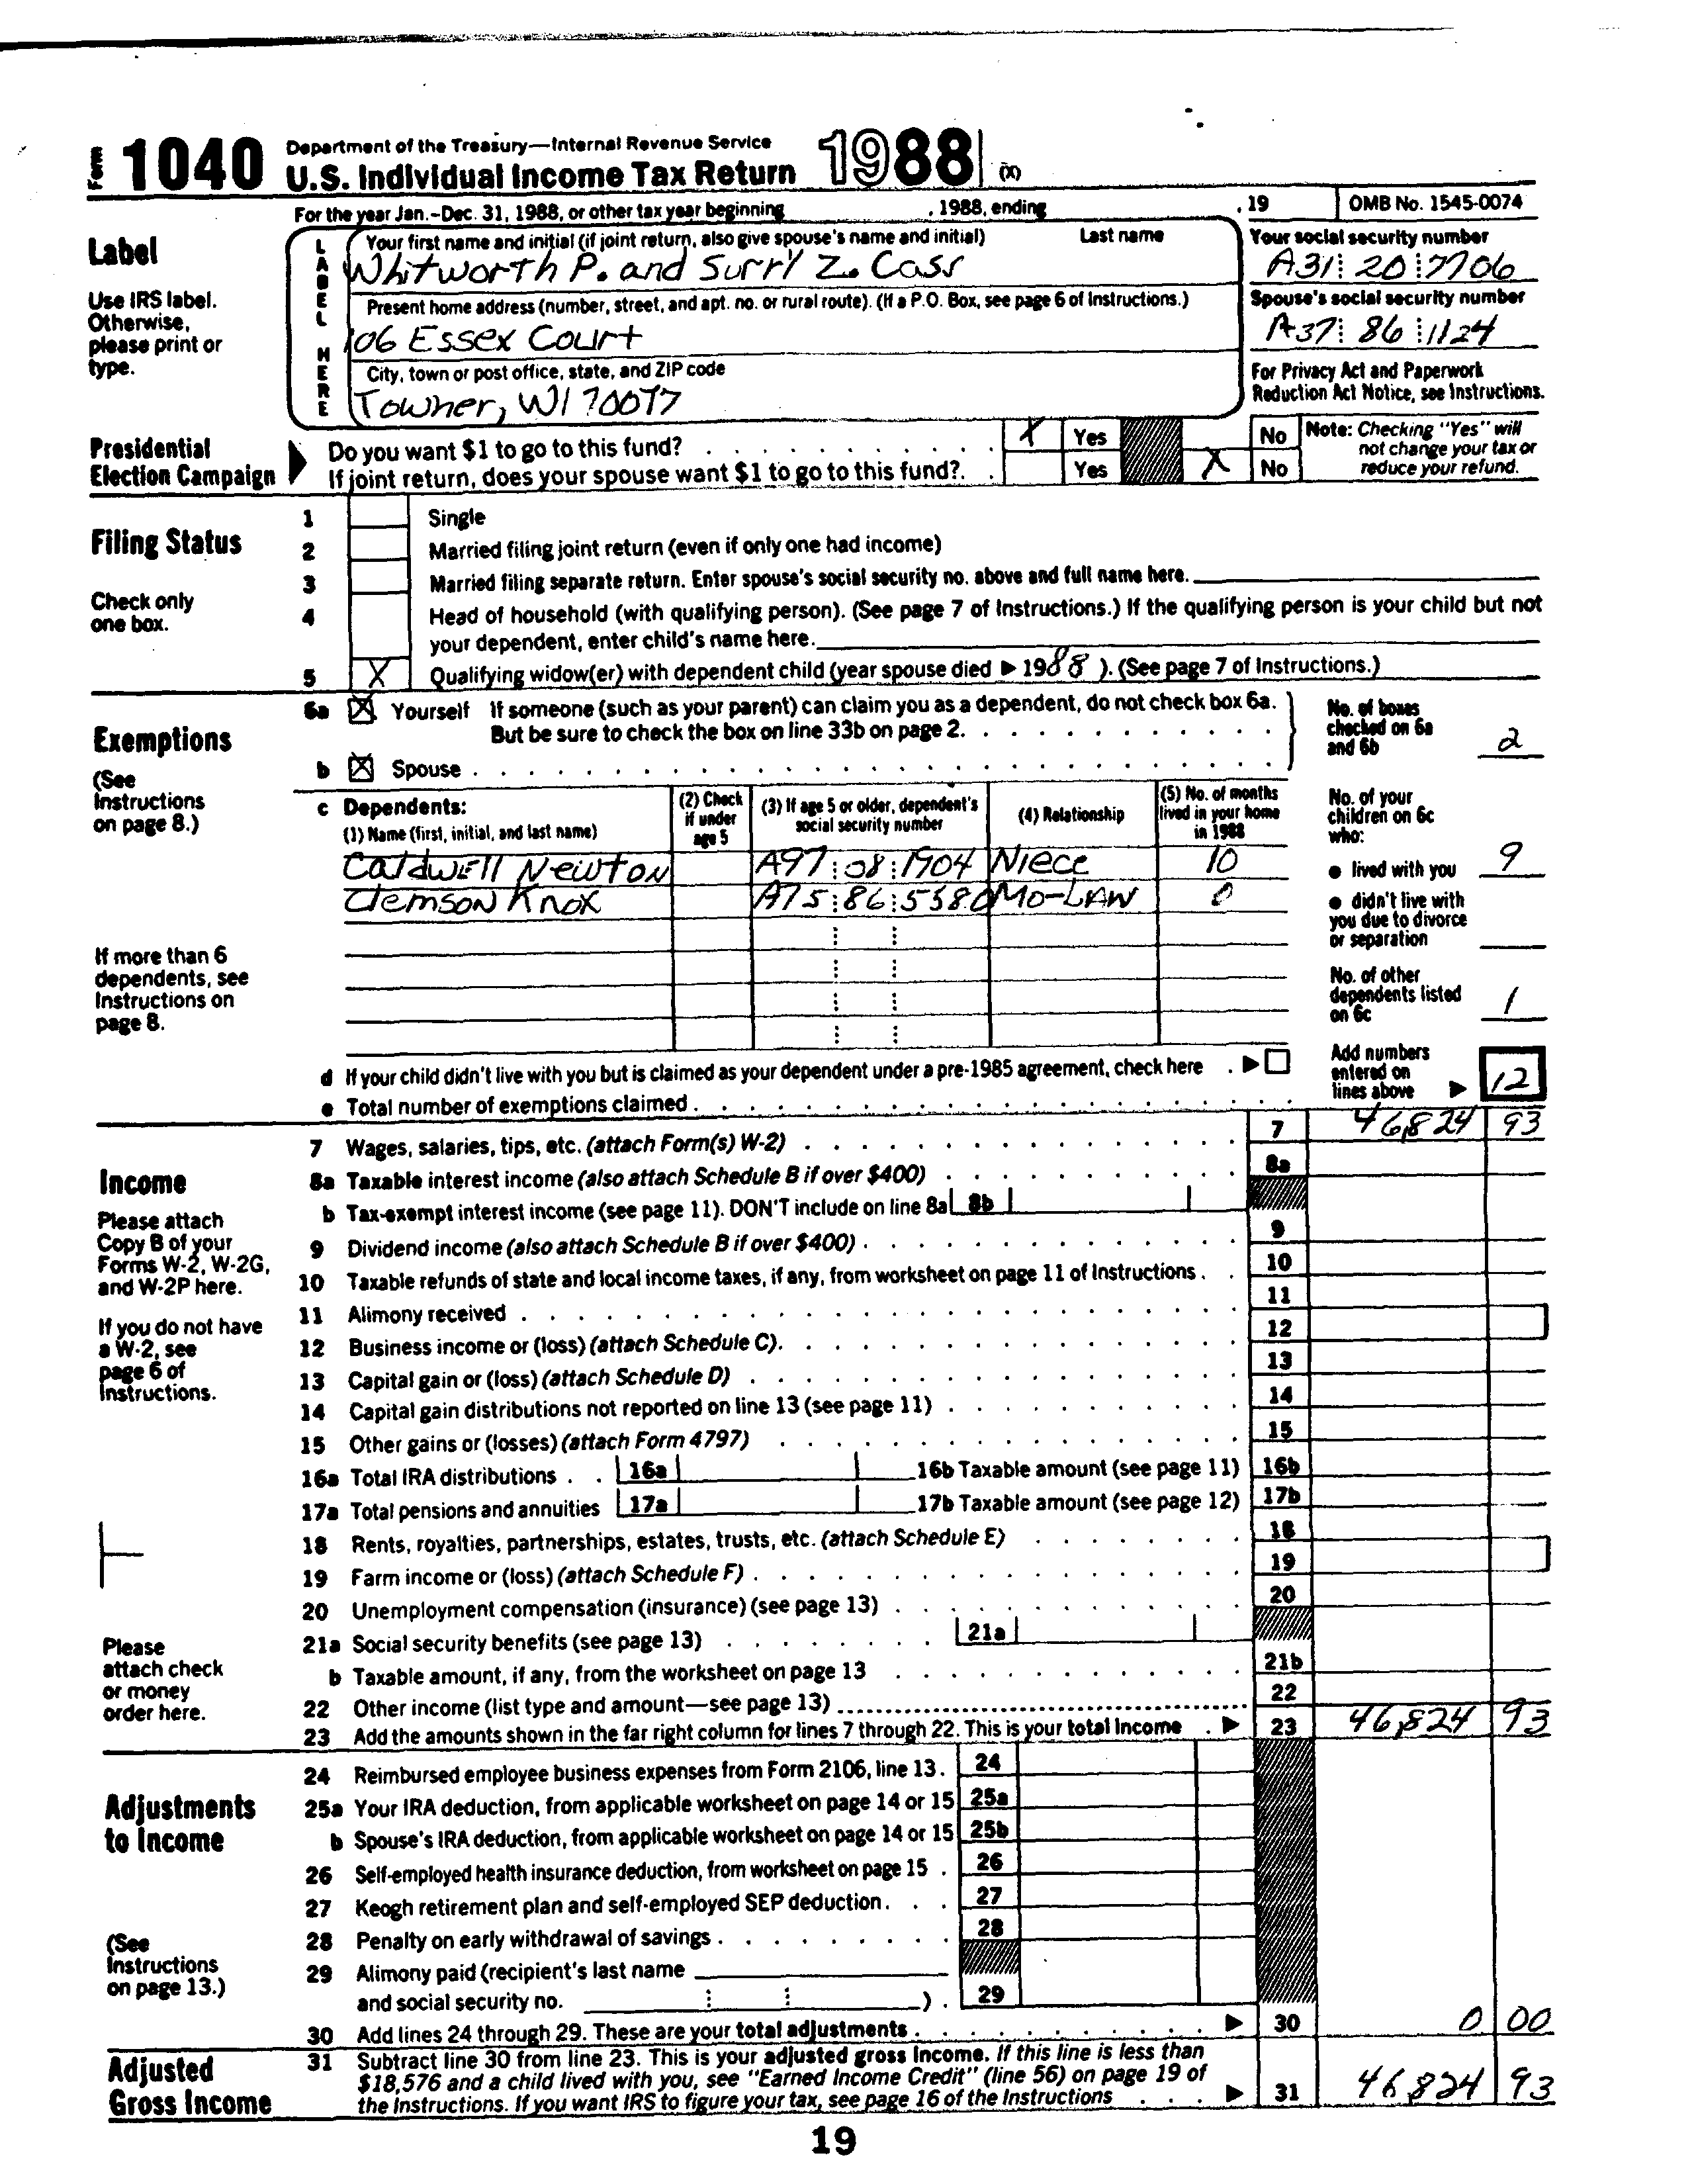 Form 1040 Department of the Treasury—Internal Revenue Service
U.S. Individual Income Tax Return 1988 (X)
For the year Jan.-Dec. 31, 1988, or other tax year beginning , 1988, ending , 19 OMB No. 1545-0074
Label
Use IRS label. Otherwise, please print or type.
LABEL HERE
Your first name and initial (if joint return, also give spouse's name and initial) Last name
Whitworth P. and Surry Z. Cass
Your social security number
A31 20 7706
Present home address (number, street, and apt. no. or rural route). (If a P.O. Box, see page 6 of Instructions.)
106 Essex Court
Spouse's social security number
A37 86 1124
City, town or post office, state, and ZIP code
Towner, WI 70077
For Privacy Act and Paperwork Reduction Act Notice, see Instructions.
Presidential Election Campaign
Do you want $1 to go to this fund? X Yes No
If joint return, does your spouse want $1 to go to this fund? Yes X No
Note: Checking "Yes" will not change your tax or reduce your refund.
Filing Status
Check only one box.
1 Single
2 Married filing joint return (even if only one had income)
3 Married filing separate return. Enter spouse's social security no. above and full name here.
4 Head of household (with qualifying person). (See page 7 of Instructions.) If the qualifying person is your child but not
your dependent, enter child's name here.
5 X Qualifying widow(er) with dependent child (year spouse died ▶ 1988 ). (See page 7 of Instructions.)
Exemptions
(See Instructions on page 8.)
6a X Yourself If someone (such as your parent) can claim you as a dependent, do not check box 6a.
But be sure to check the box on line 33b on page 2.
b X Spouse
No. of boxes checked on 6a and 6b 2
c Dependents:
(1) Name (first, initial, and last name) (2) Check if under age 5 (3) If age 5 or older, dependent's social security number (4) Relationship (5) No. of months lived in your home in 1988
Caldwell Newton A97 08 1904 Niece 10
Clemson Knox A75 86 5380 Mo-LAW 0
If more than 6 dependents, see Instructions on page 8.
No. of your children on 6c who:
● lived with you 9
● didn't live with you due to divorce or separation
No. of other dependents listed on 6c 1
d If your child didn't live with you but is claimed as your dependent under a pre-1985 agreement, check here ▶
e Total number of exemptions claimed
Add numbers entered on lines above ▶ 12
Income
Please attach Copy B of your Forms W-2, W-2G, and W-2P here.
If you do not have a W-2, see page 6 of Instructions.
Please attach check or money order here.
7 Wages, salaries, tips, etc. (attach Form(s) W-2) 7 46,824 93
8a Taxable interest income (also attach Schedule B if over $400) 8a
b Tax-exempt interest income (see page 11). DON'T include on line 8a 8b
9 Dividend income (also attach Schedule B if over $400) 9
10 Taxable refunds of state and local income taxes, if any, from worksheet on page 11 of Instructions 10
11 Alimony received 11
12 Business income or (loss) (attach Schedule C) 12
13 Capital gain or (loss) (attach Schedule D) 13
14 Capital gain distributions not reported on line 13 (see page 11) 14
15 Other gains or (losses) (attach Form 4797) 15
16a Total IRA distributions 16a 16b Taxable amount (see page 11) 16b
17a Total pensions and annuities 17a 17b Taxable amount (see page 12) 17b
18 Rents, royalties, partnerships, estates, trusts, etc. (attach Schedule E) 18
19 Farm income or (loss) (attach Schedule F) 19
20 Unemployment compensation (insurance) (see page 13) 20
21a Social security benefits (see page 13) 21a
b Taxable amount, if any, from the worksheet on page 13 21b
22 Other income (list type and amount—see page 13) 22
23 Add the amounts shown in the far right column for lines 7 through 22. This is your total income ▶ 23 46,824 93
Adjustments to Income
(See Instructions on page 13.)
24 Reimbursed employee business expenses from Form 2106, line 13. 24
25a Your IRA deduction, from applicable worksheet on page 14 or 15 25a
b Spouse's IRA deduction, from applicable worksheet on page 14 or 15 25b
26 Self-employed health insurance deduction, from worksheet on page 15 26
27 Keogh retirement plan and self-employed SEP deduction 27
28 Penalty on early withdrawal of savings 28
29 Alimony paid (recipient's last name
and social security no. ) 29
30 Add lines 24 through 29. These are your total adjustments ▶ 30 0 00
Adjusted Gross Income
31 Subtract line 30 from line 23. This is your adjusted gross income. If this line is less than
$18,576 and a child lived with you, see "Earned Income Credit" (line 56) on page 19 of
the Instructions. If you want IRS to figure your tax, see page 16 of the Instructions ▶ 31 46,824 93
19